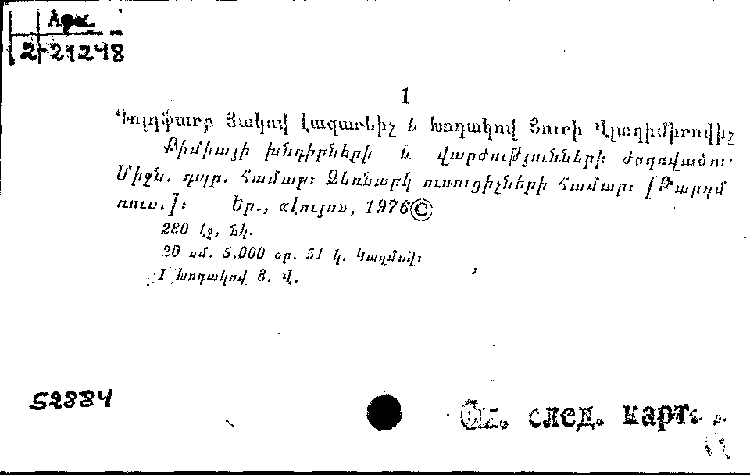 Арм.
2-21248
1
Գոլդֆարբ Յակով Լազարևիչ և Խոդակով Յուրի Վլադիմիրովիչ
Քիմիայի խնդիրների և վարժությունների ժողովածու:
Միջն. դպր. համար: Ձեռնարկ ուսուցիչների համար: [Թարգմ.
ռուս.]: Եր., «Լույս», 1976 ©
280 էջ, նկ.
20 սմ. 5.000 օր. 51 կ. Կազմով:
I Խոդակով Յ. Վ.
52884
См. след. карт.